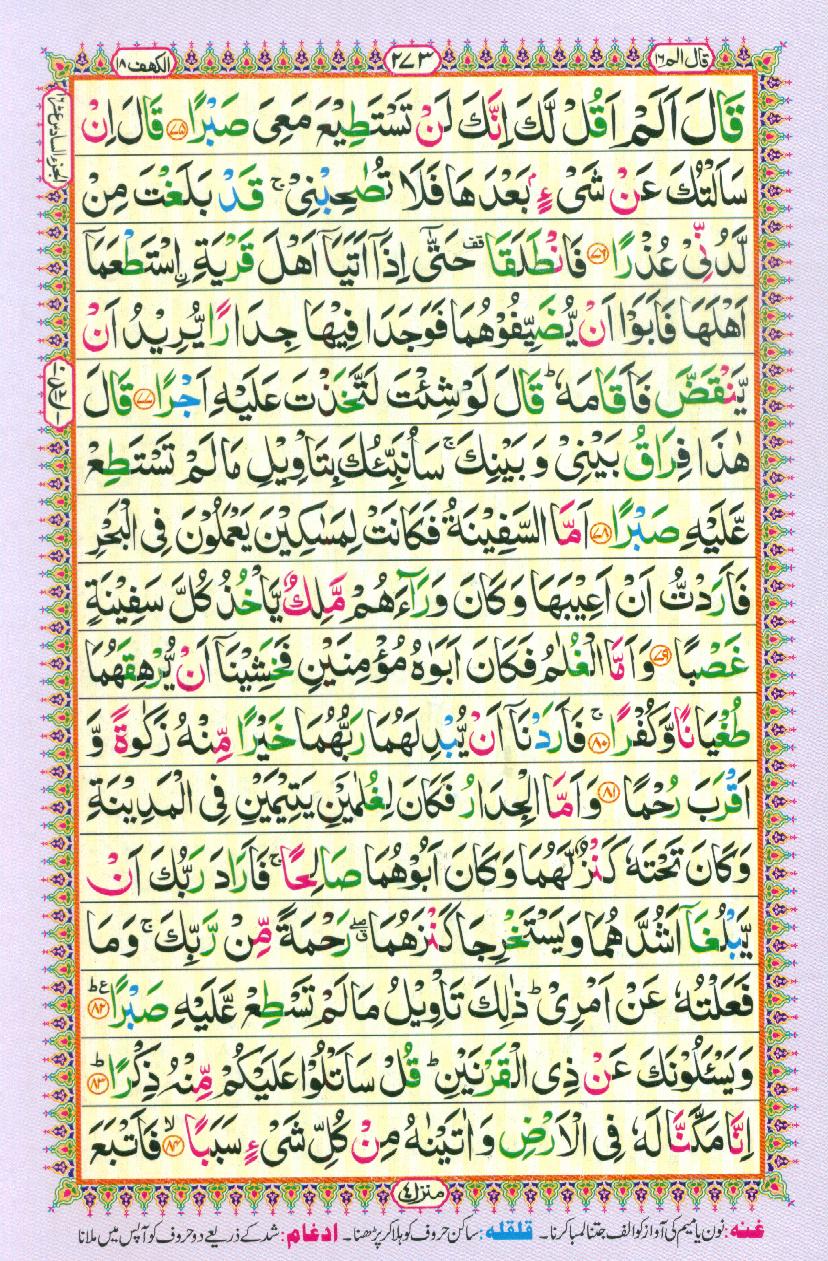 قال الم ١٦
٢٧٣
الكهف ١٨
قَالَ اَلَمْ اَقُلْ لَّكَ اِنَّكَ لَنْ تَسْتَطِيْعَ مَعِىَ صَبْرًا ﴿٧٥﴾ قَالَ اِنْ
سَاَلْتُكَ عَنْ شَىْءٍۭ بَعْدَهَا فَلَا تُصٰحِبْنِىْ ۚ قَدْ بَلَغْتَ مِنْ
لَّدُنِّىْ عُذْرًا ﴿٧٦﴾ فَانْطَلَقَا ۥقف حَتّٰۤى اِذَاۤ اَتَيَاۤ اَهْلَ قَرْيَةِ ۨاسْتَطْعَمَاۤ
اَهْلَهَا فَاَبَوْا اَنْ يُّضَيِّفُوْهُمَا فَوَجَدَا فِيْهَا جِدَارًا يُّرِيْدُ اَنْ
يَّنْقَضَّ فَاَقَامَهٗ ؕ قَالَ لَوْ شِئْتَ لَتَّخَذْتَ عَلَيْهِ اَجْرًا ﴿٧٧﴾ قَالَ
هٰذَا فِرَاقُ بَيْنِىْ وَ بَيْنِكَ ۚ سَاُنَبِّئُكَ بِتَاْوِيْلِ مَا لَمْ تَسْتَطِعْ
عَّلَيْهِ صَبْرًا ﴿٧٨﴾ اَمَّا السَّفِيْنَةُ فَكَانَتْ لِمَسٰكِيْنَ يَعْمَلُوْنَ فِى الْبَحْرِ
فَاَرَدْتُّ اَنْ اَعِيْبَهَا وَكَانَ وَرَآءَهُمْ مَّلِكٌ يَّاْخُذُ كُلَّ سَفِيْنَةٍ
غَصْبًا ﴿٧٩﴾ وَ اَمَّا الْغُلٰمُ فَكَانَ اَبَوٰهُ مُؤْمِنَيْنِ فَخَشِيْنَاۤ اَنْ يُّرْهِقَهُمَا
طُغْيَانًا وَّكُفْرًا ﴿٨٠﴾ ۚ فَاَرَدْنَاۤ اَنْ يُّبْدِلَهُمَا رَبُّهُمَا خَيْرًا مِّنْهُ زَكٰوةً وَّ
اَقْرَبَ رُحْمًا ﴿٨١﴾ وَ اَمَّا الْجِدَارُ فَكَانَ لِغُلٰمَيْنِ يَتِيْمَيْنِ فِى الْمَدِيْنَةِ
وَكَانَ تَحْتَهٗ كَنْزٌ لَّهُمَا وَكَانَ اَبُوْهُمَا صَالِحًا ۚ فَاَرَادَ رَبُّكَ اَنْ
يَّبْلُغَاۤ اَشُدَّهُمَا وَيَسْتَخْرِجَا كَنْزَهُمَا ۖق رَحْمَةً مِّنْ رَّبِّكَ ۚ وَمَا
فَعَلْتُهٗ عَنْ اَمْرِىْ ؕ ذٰلِكَ تَاْوِيْلُ مَا لَمْ تَسْطِعْ عَّلَيْهِ صَبْرًا ﴿٨٢﴾ ؕع
وَيَسْـَٔلُوْنَكَ عَنْ ذِى الْقَرْنَيْنِ ؕ قُلْ سَاَتْلُوْا عَلَيْكُمْ مِّنْهُ ذِكْرًا ﴿٨٣﴾ ؕ
اِنَّا مَكَّنَّا لَهٗ فِى الْاَرْضِ وَ اٰتَيْنٰهُ مِنْ كُلِّ شَىْءٍ سَبَبًا ﴿٨٤﴾ ۙ فَاَتْبَعَ
منزل ٤
غنه: نون یا میم کی آواز کو الف جتنا لمبا کرنا۔ قلقله: ساکن حروف کو ہلا کر پڑھنا۔ ادغام: شد کے ذریعے دو حروف کو آپس میں ملانا